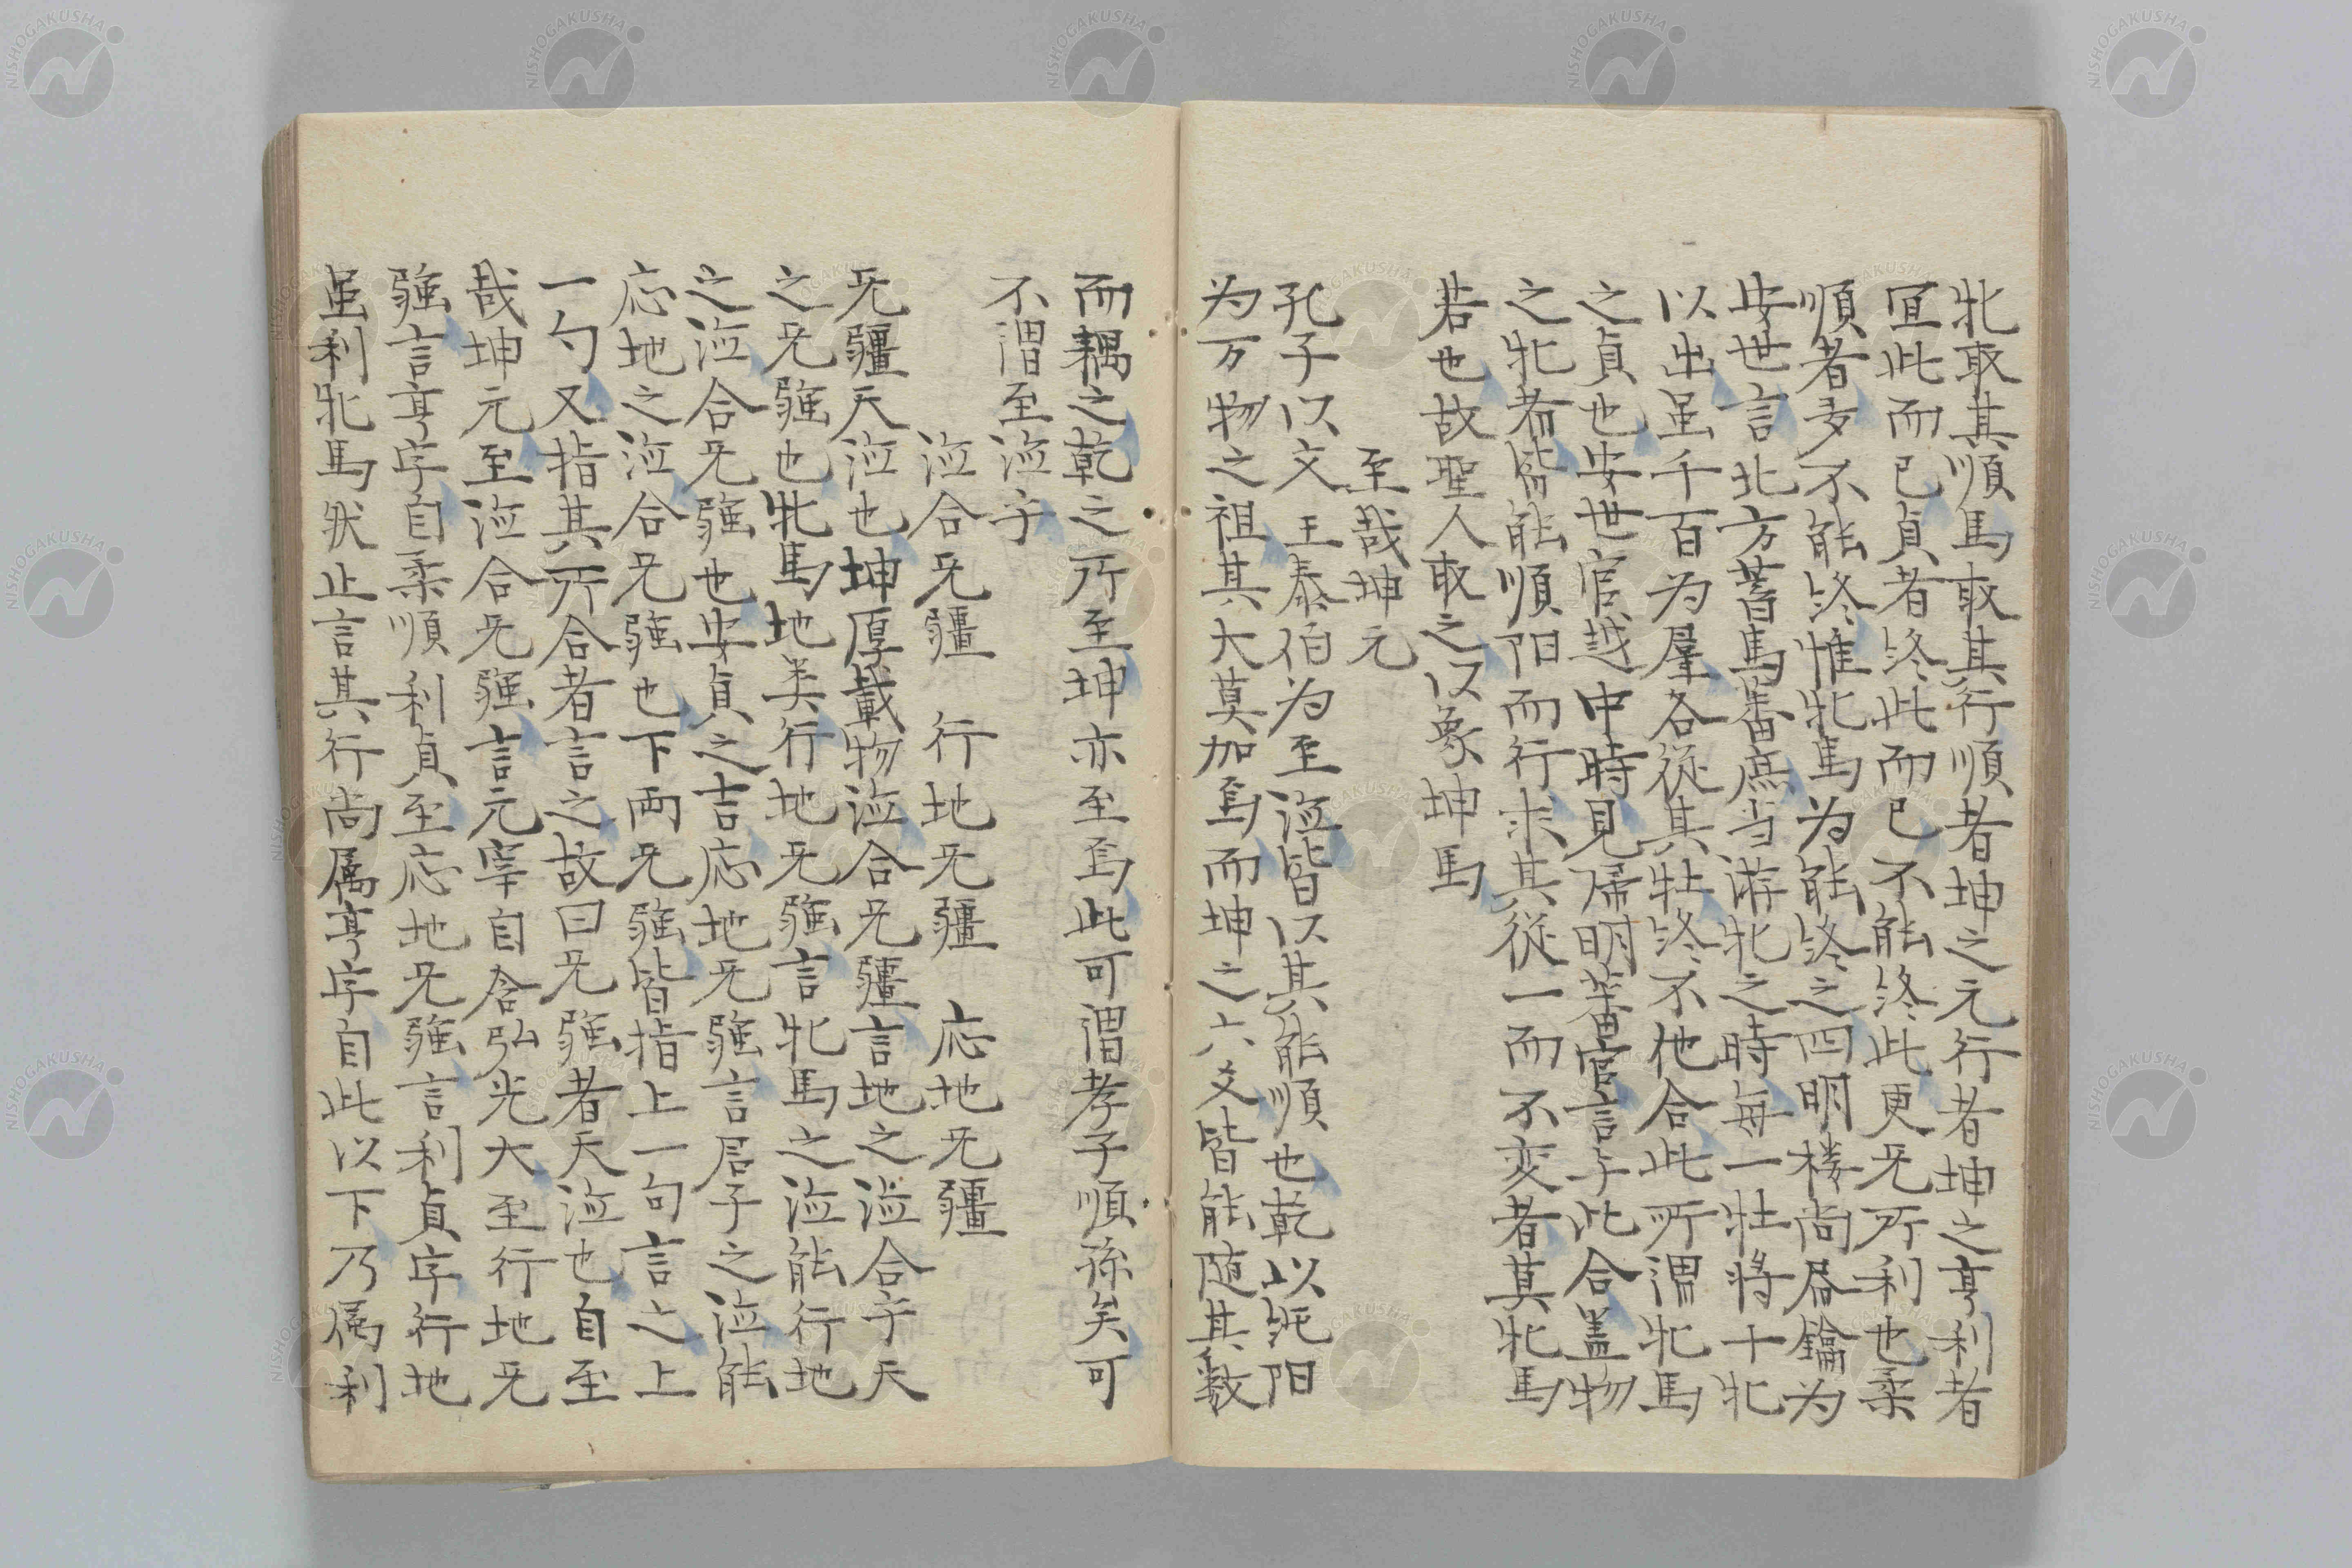 牝取其順馬取其行順者坤之元行者坤之亨利者
冝此而已貞者終此而已不能終此更旡所利也柔
順者多不能終惟牝馬为能終之四明楼尚居鑰为
安世言北方蓄馬蕃庶当游牝之時每一牡将十牝
以出虽千百为羣各從其牡終不他合此所謂牝馬
之貞也安世官越中時見帰明蕃官言与此合盖物
之牝者皆能順阳而行求其從一而不变者莫牝馬
若也故聖人取之以象坤馬
至哉坤元
孔子以文王泰伯为至徳皆以其能順也乾以純阳
为万物之祖其大莫加焉而坤之六爻皆能随其数
而耦之乾之所至坤亦至焉此可謂孝子順孫矣可
不謂至徳乎
徳合旡疆　行地旡疆　応地旡疆
旡疆天徳也坤厚載物徳合旡疆言地之徳合乎天
之旡疆也牝馬地类行地旡疆言牝馬之徳能行地
之徳合旡疆也安貞之吉応地旡疆言君子之徳能
応地之徳合旡疆也下両旡疆皆指上一句言之上
一勺又指其所合者言之故曰旡疆者天徳也自至
哉坤元至徳合旡疆言元字自含弘光大至行地旡
疆言亨字自柔順利貞至応地旡疆言利貞字行地
虽利牝馬然止言其行尚属亨字自此以下乃属利
NISHOGAKUSHA